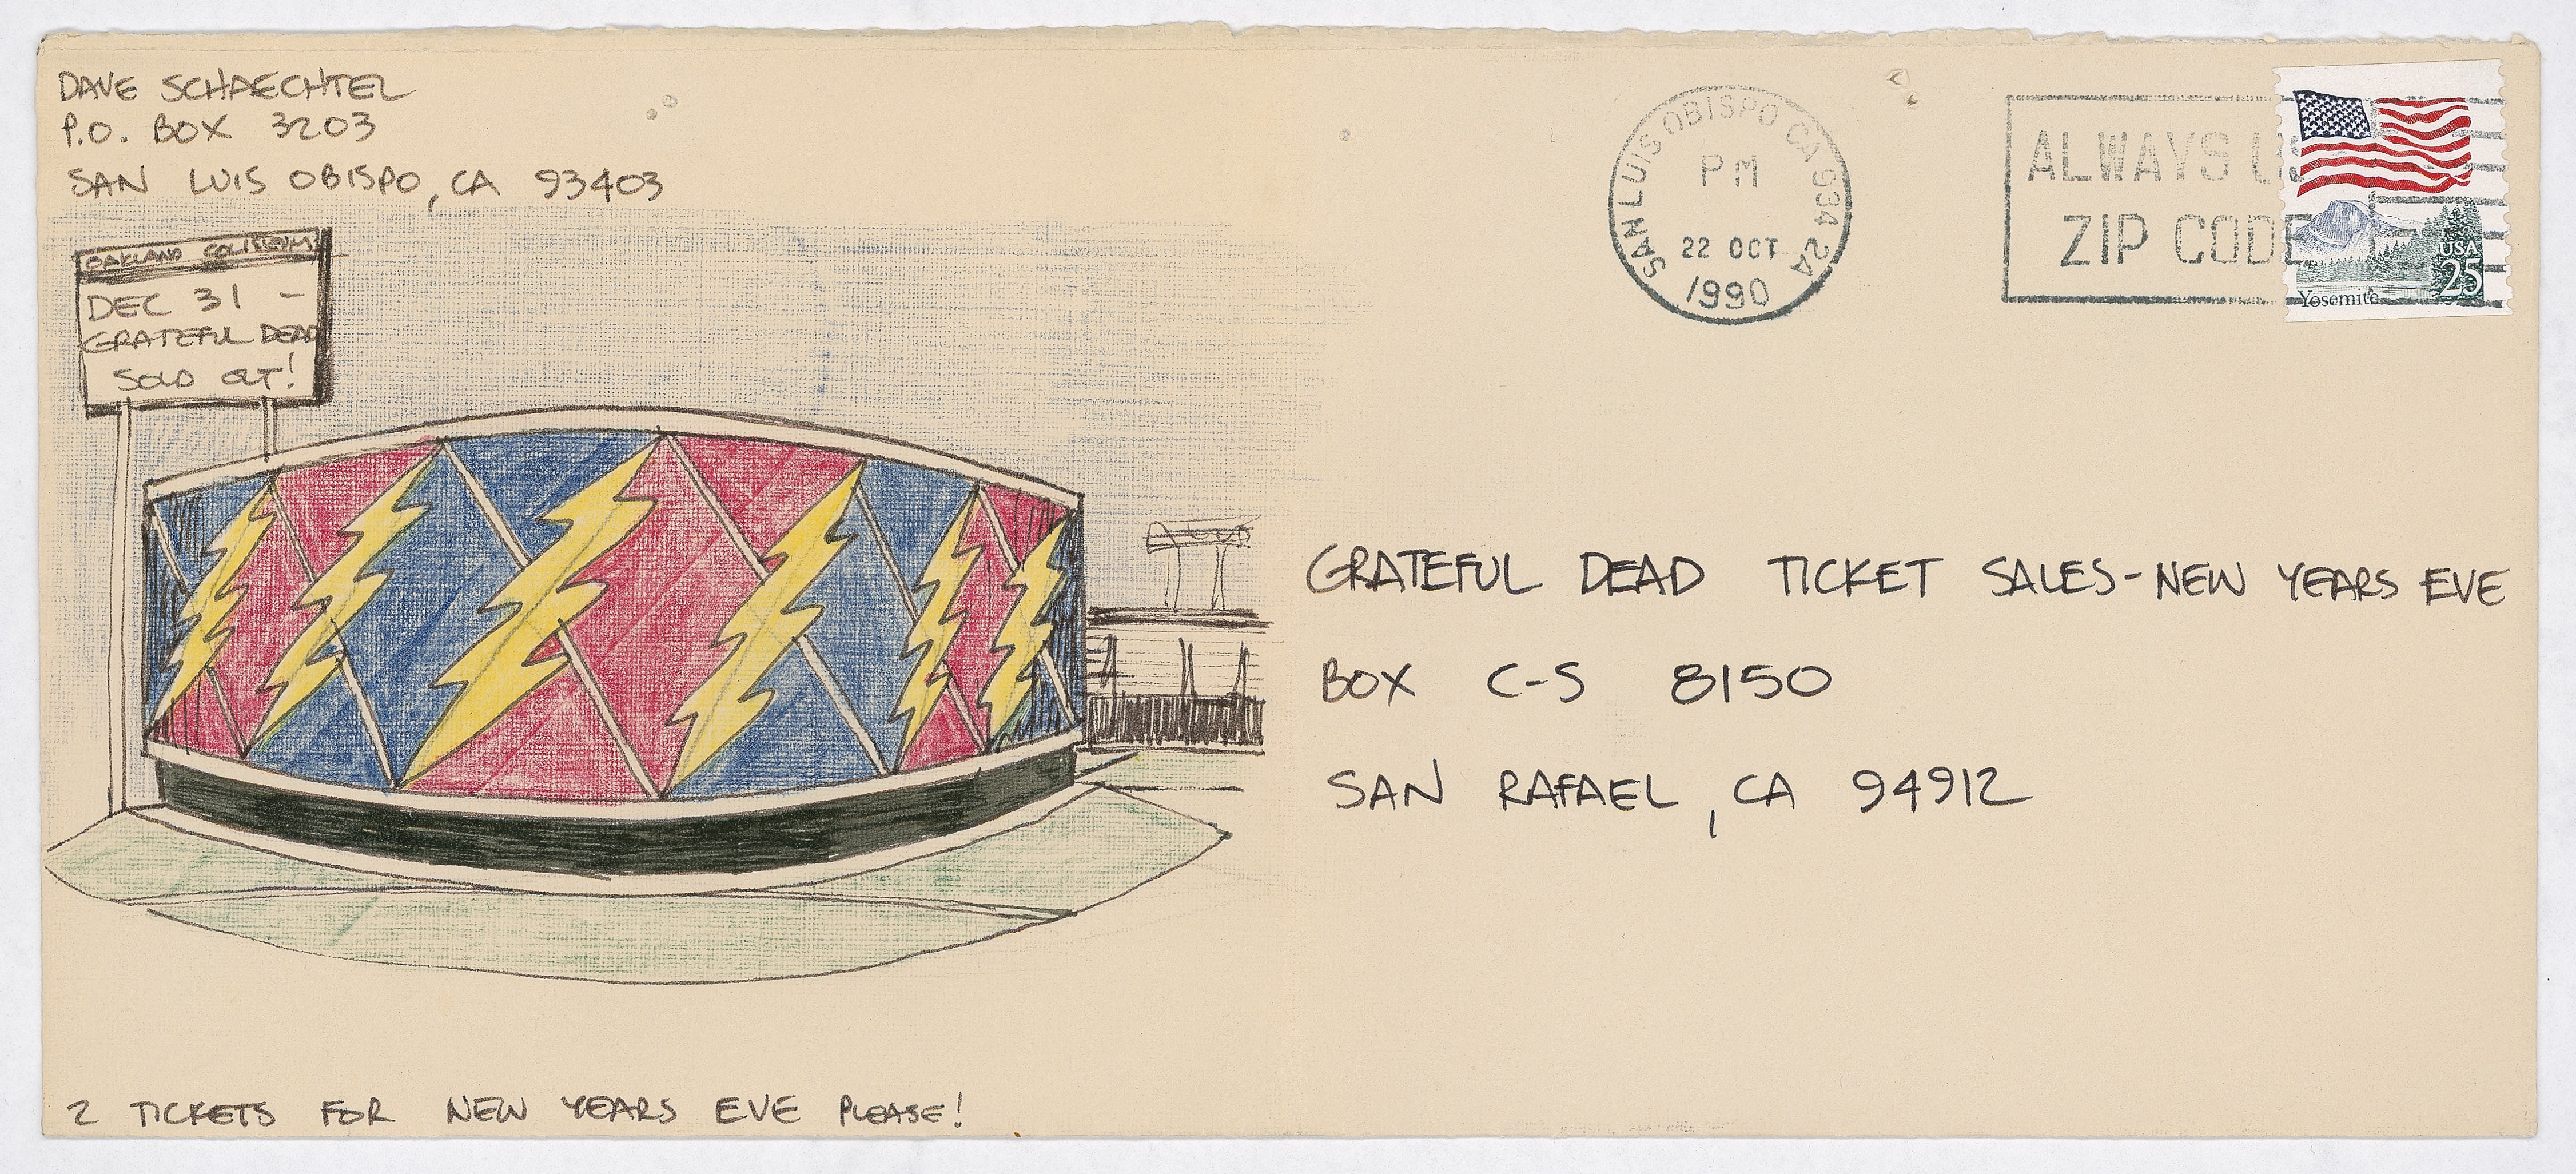 DAVE SCHAECHTEL
P.O. BOX 3203
SAN LUIS OBISPO, CA 93403
SAN LUIS OBISPO CA 934 2A
PM
22 OCT
1990
ALWAYS US
ZIP CODE
USA
25
Yosemite
OAKLAND COLISEUM
DEC 31 -
GRATEFUL DEAD
SOLD OUT!
GRATEFUL DEAD TICKET SALES-NEW YEARS EVE
BOX C-S 8150
SAN RAFAEL, CA 94912
2 TICKETS FOR NEW YEARS EVE PLEASE!